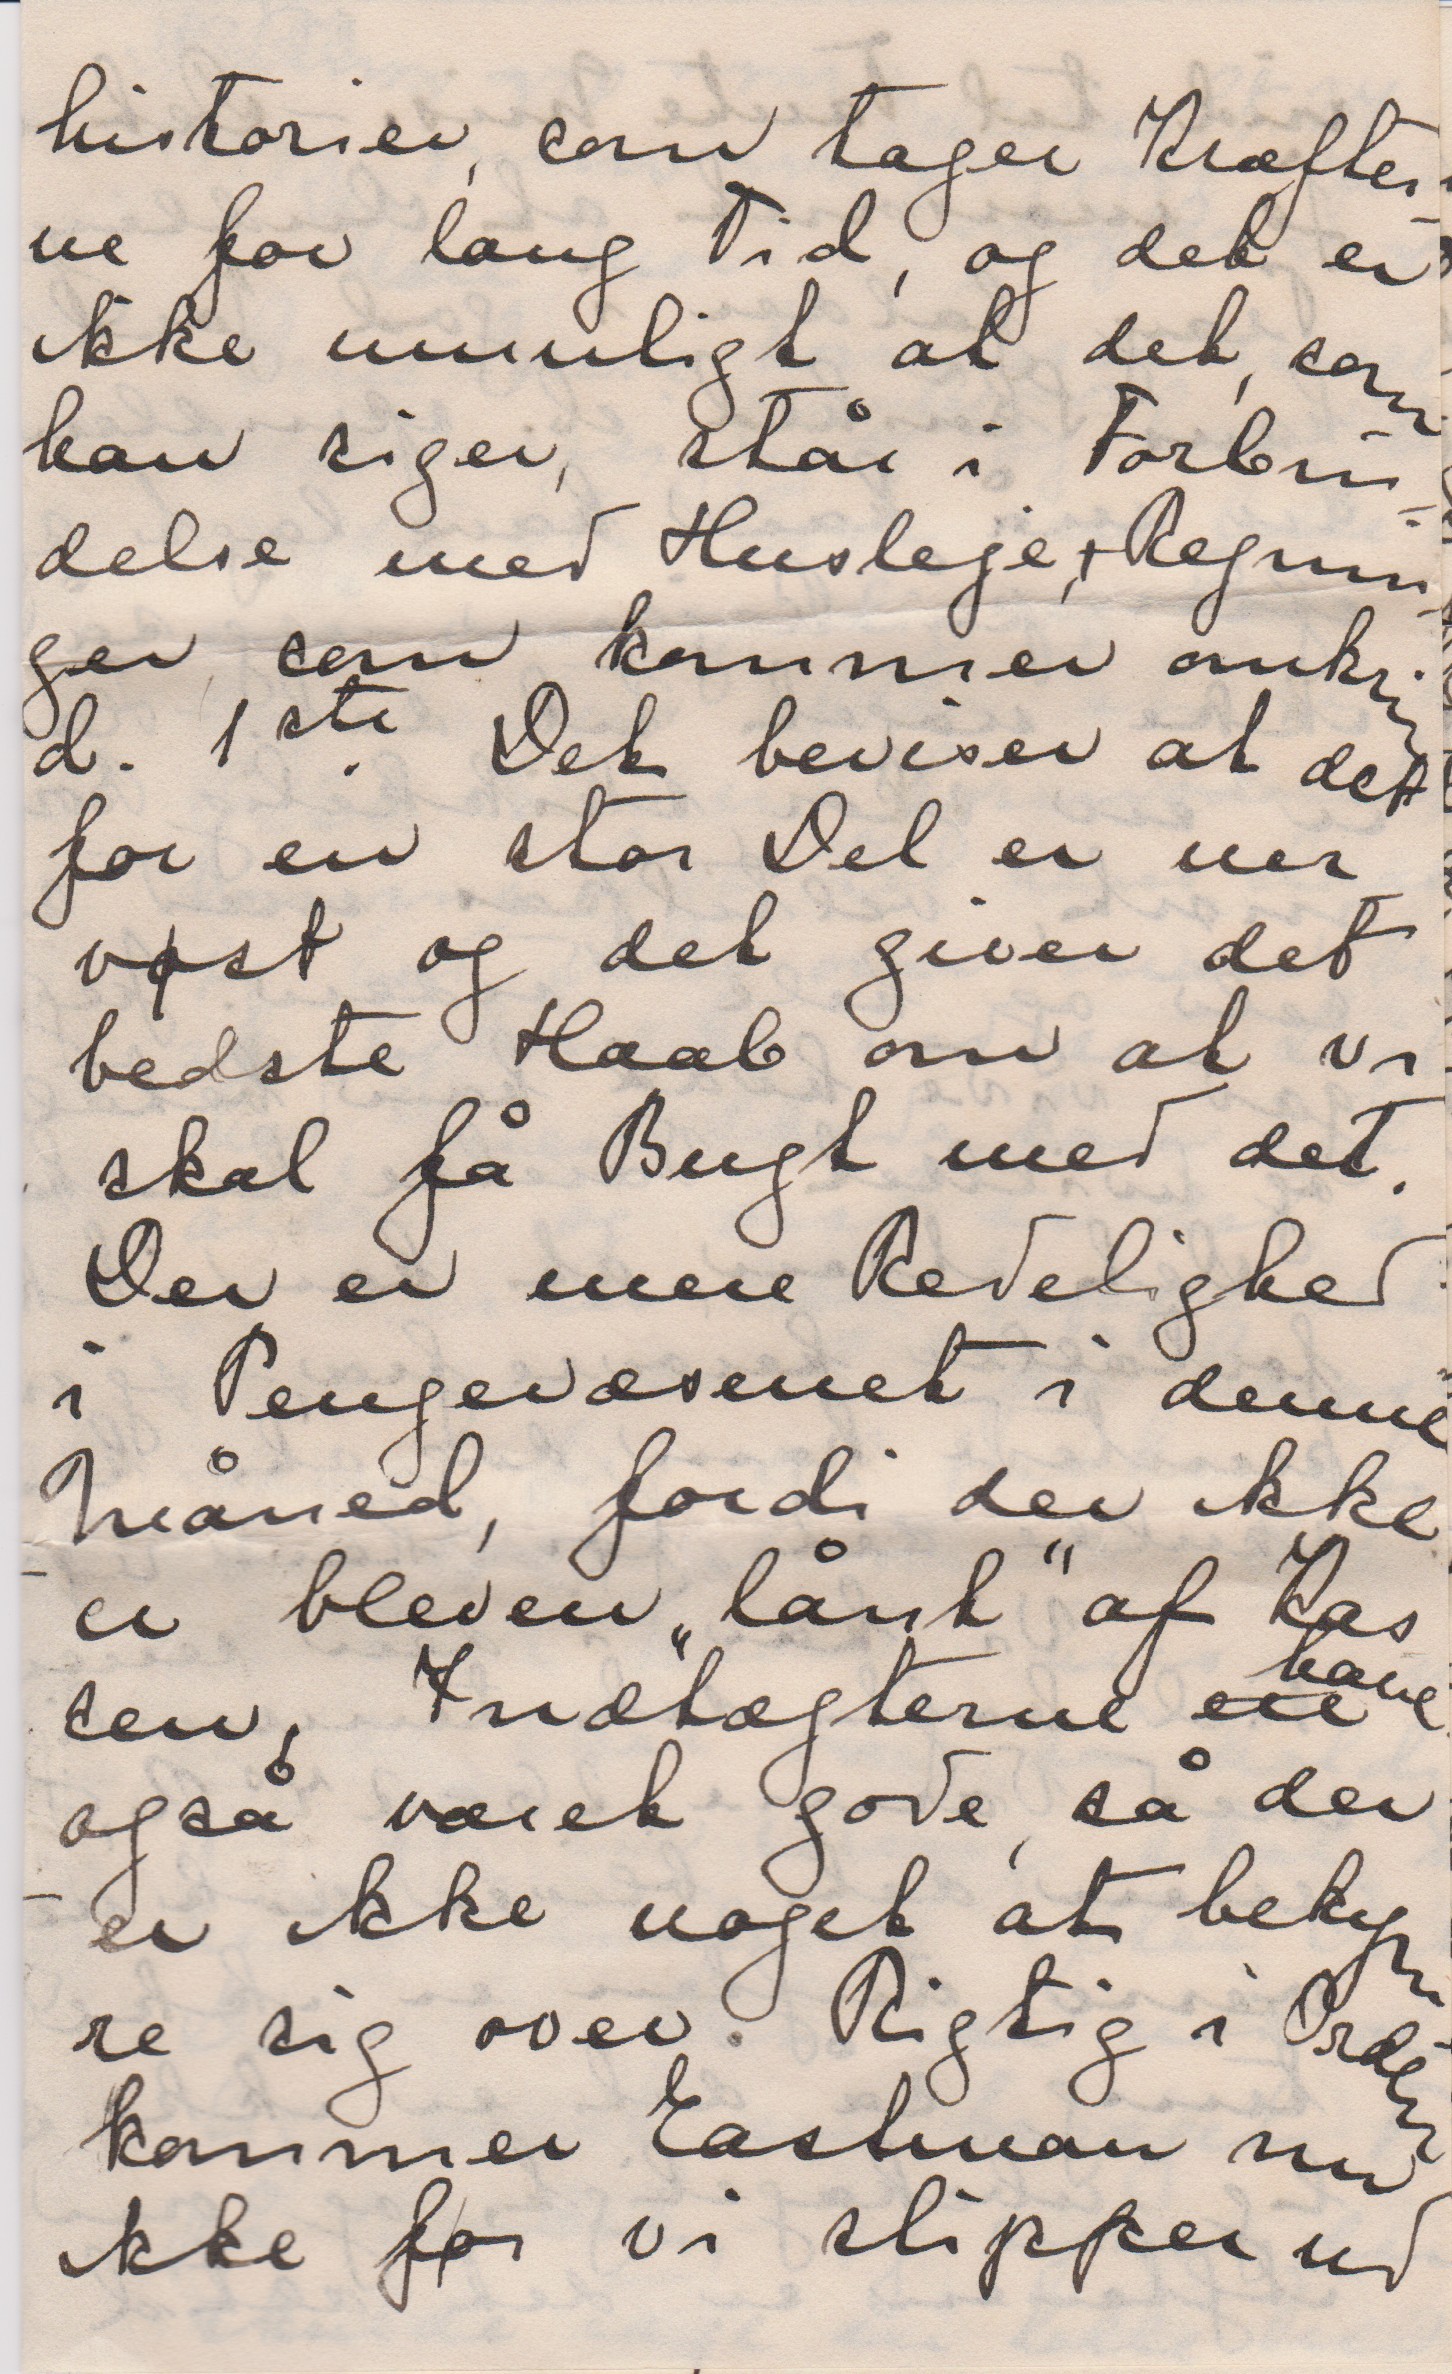 historier, som tager Kræfter
ne for lang Tid, og det er
ikke umuligt at det, som
han siger, står i Forbin
delse med Husleje, + Regnin
ger, som kommer omkring
d. 1ste. Det beviser at det
for en stor Del er ner
vøst og det giver det
bedste Haab om at vi
skal få Bugt med det.
Der er mere Redelighed
i Pengevæsenet i denne
Måned, fordi der ikke
er bleven „lånt“ af Kas
sen, Indtægterne ere have
også været gode, så der
er ikke noget at bekym
re sig over. Rigtig i Orden
kommer Eastman nu
ikke før vi slipper ud